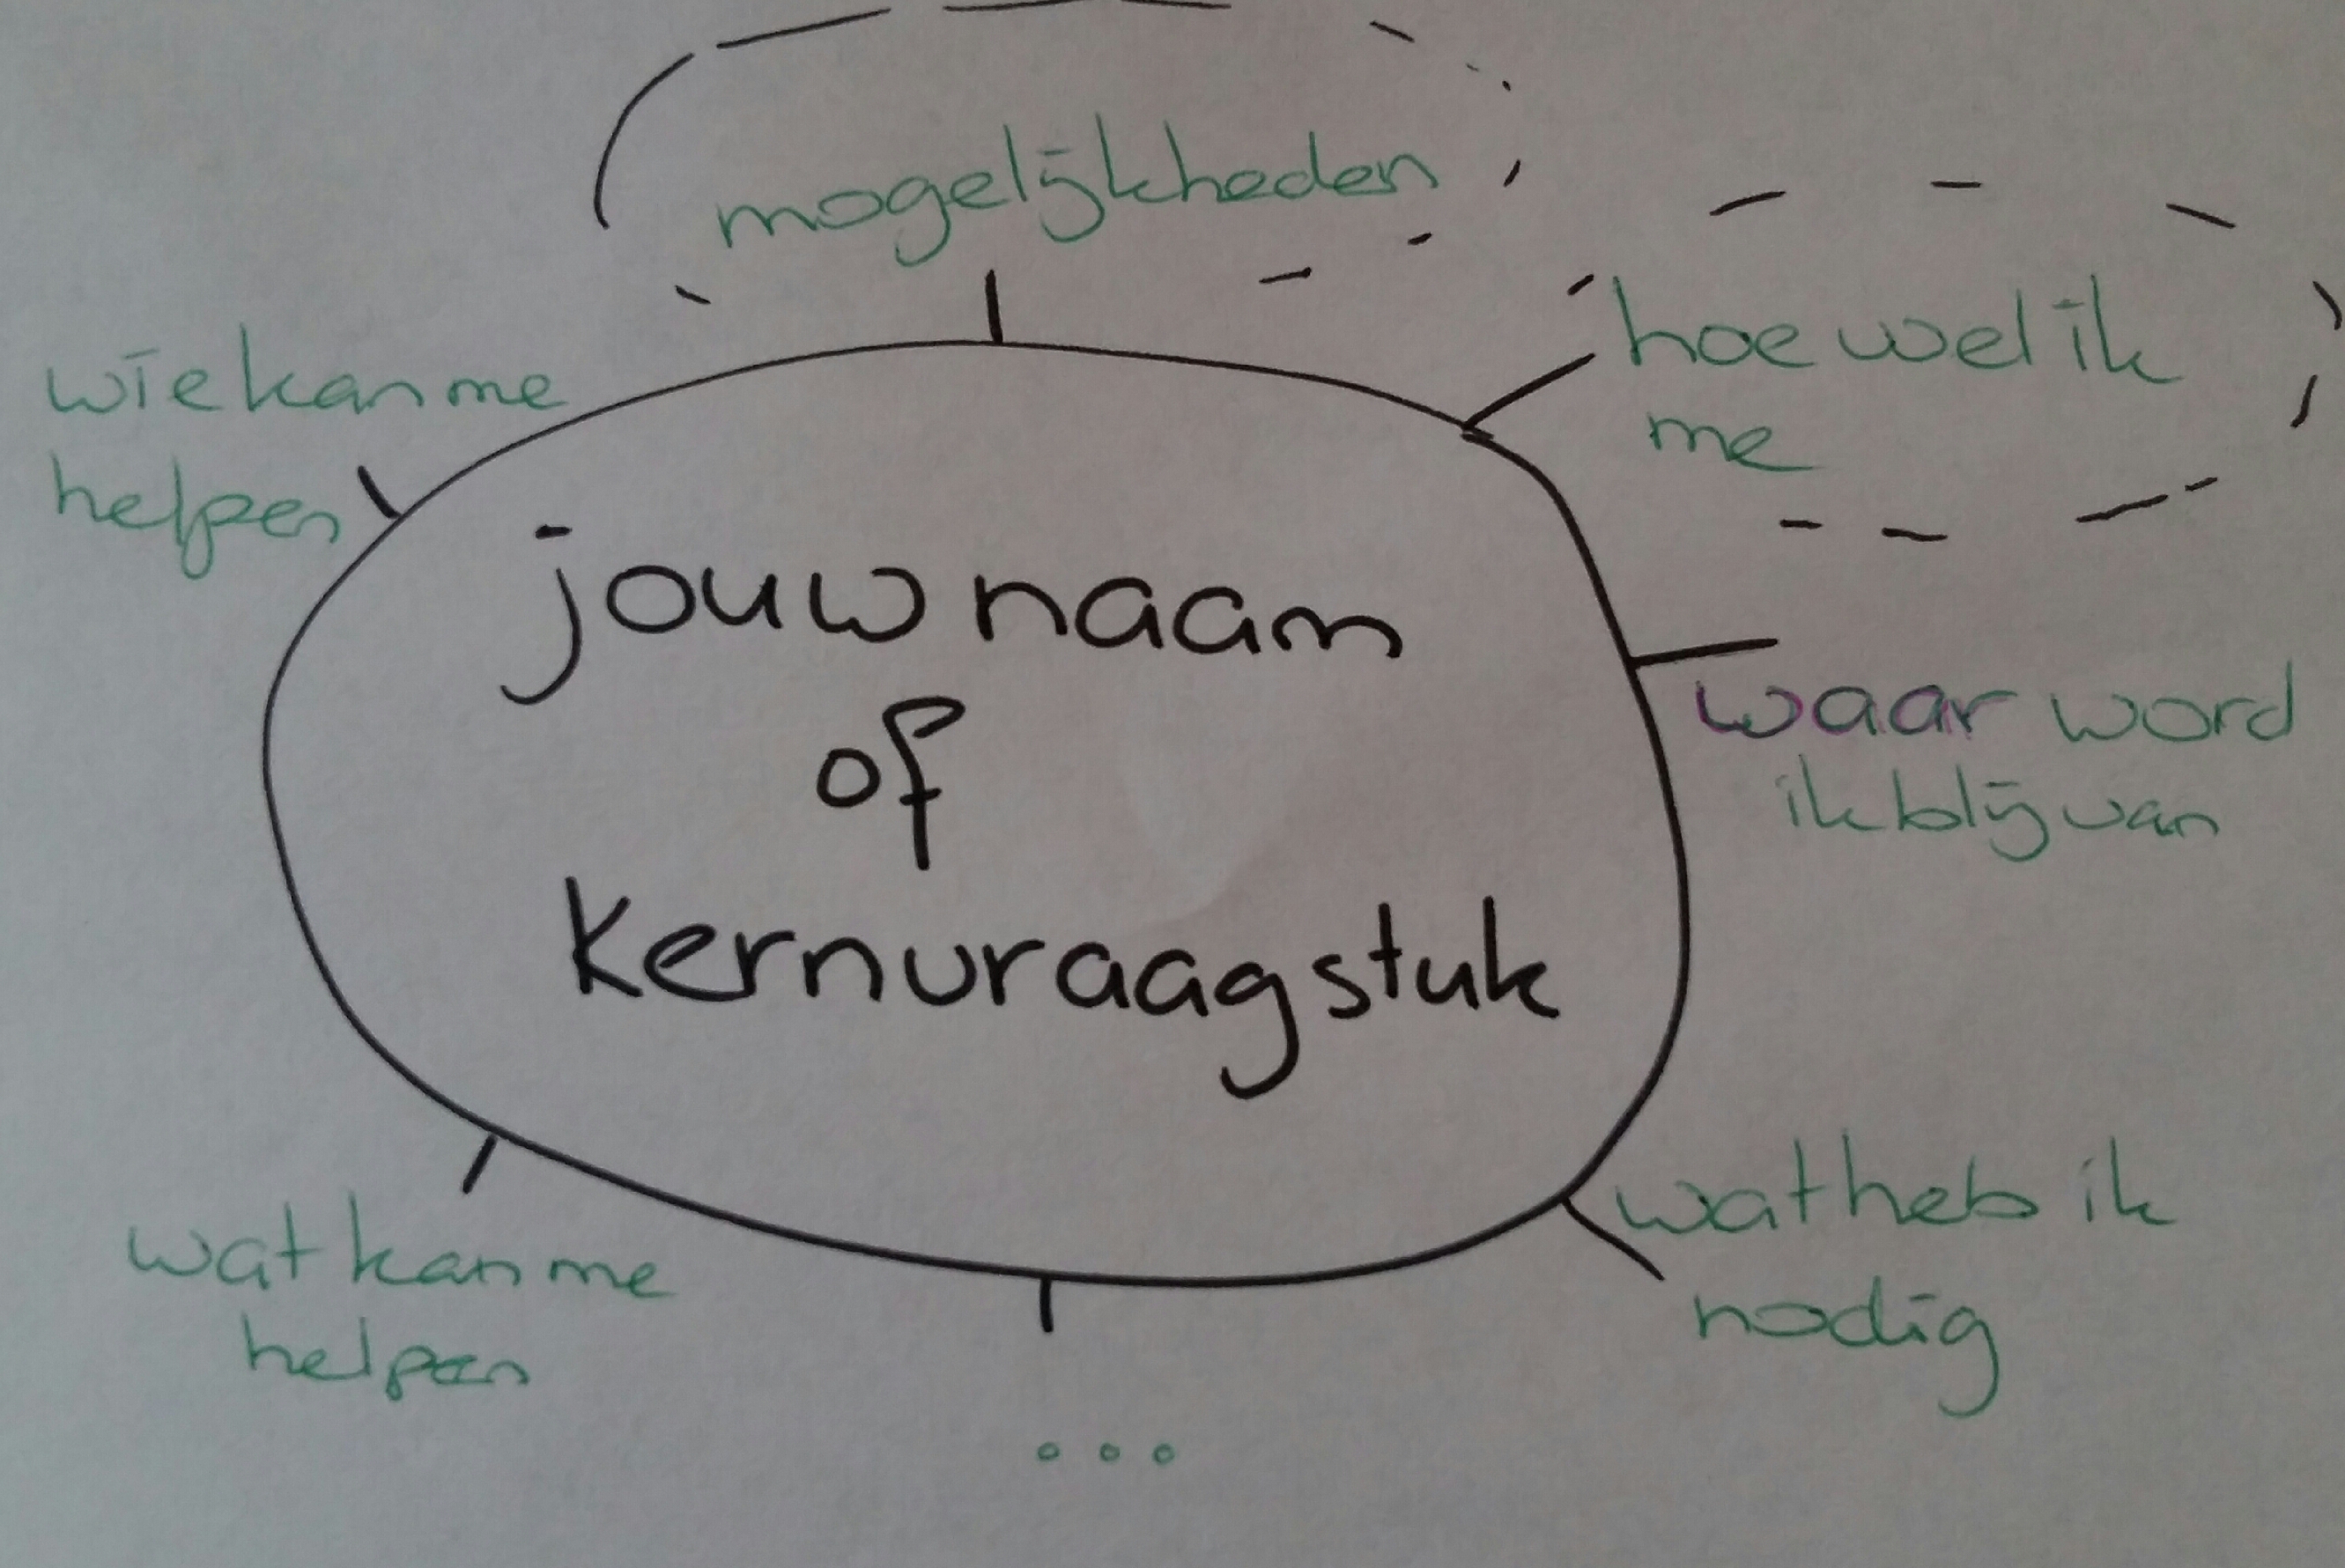 mogelijkheden
hoe wel ik
me
wie kan me
helpen
jouw naam
of
kernvraagstuk
waar word
ik blij van
wat heb ik
nodig
wat kan me
helpen
...